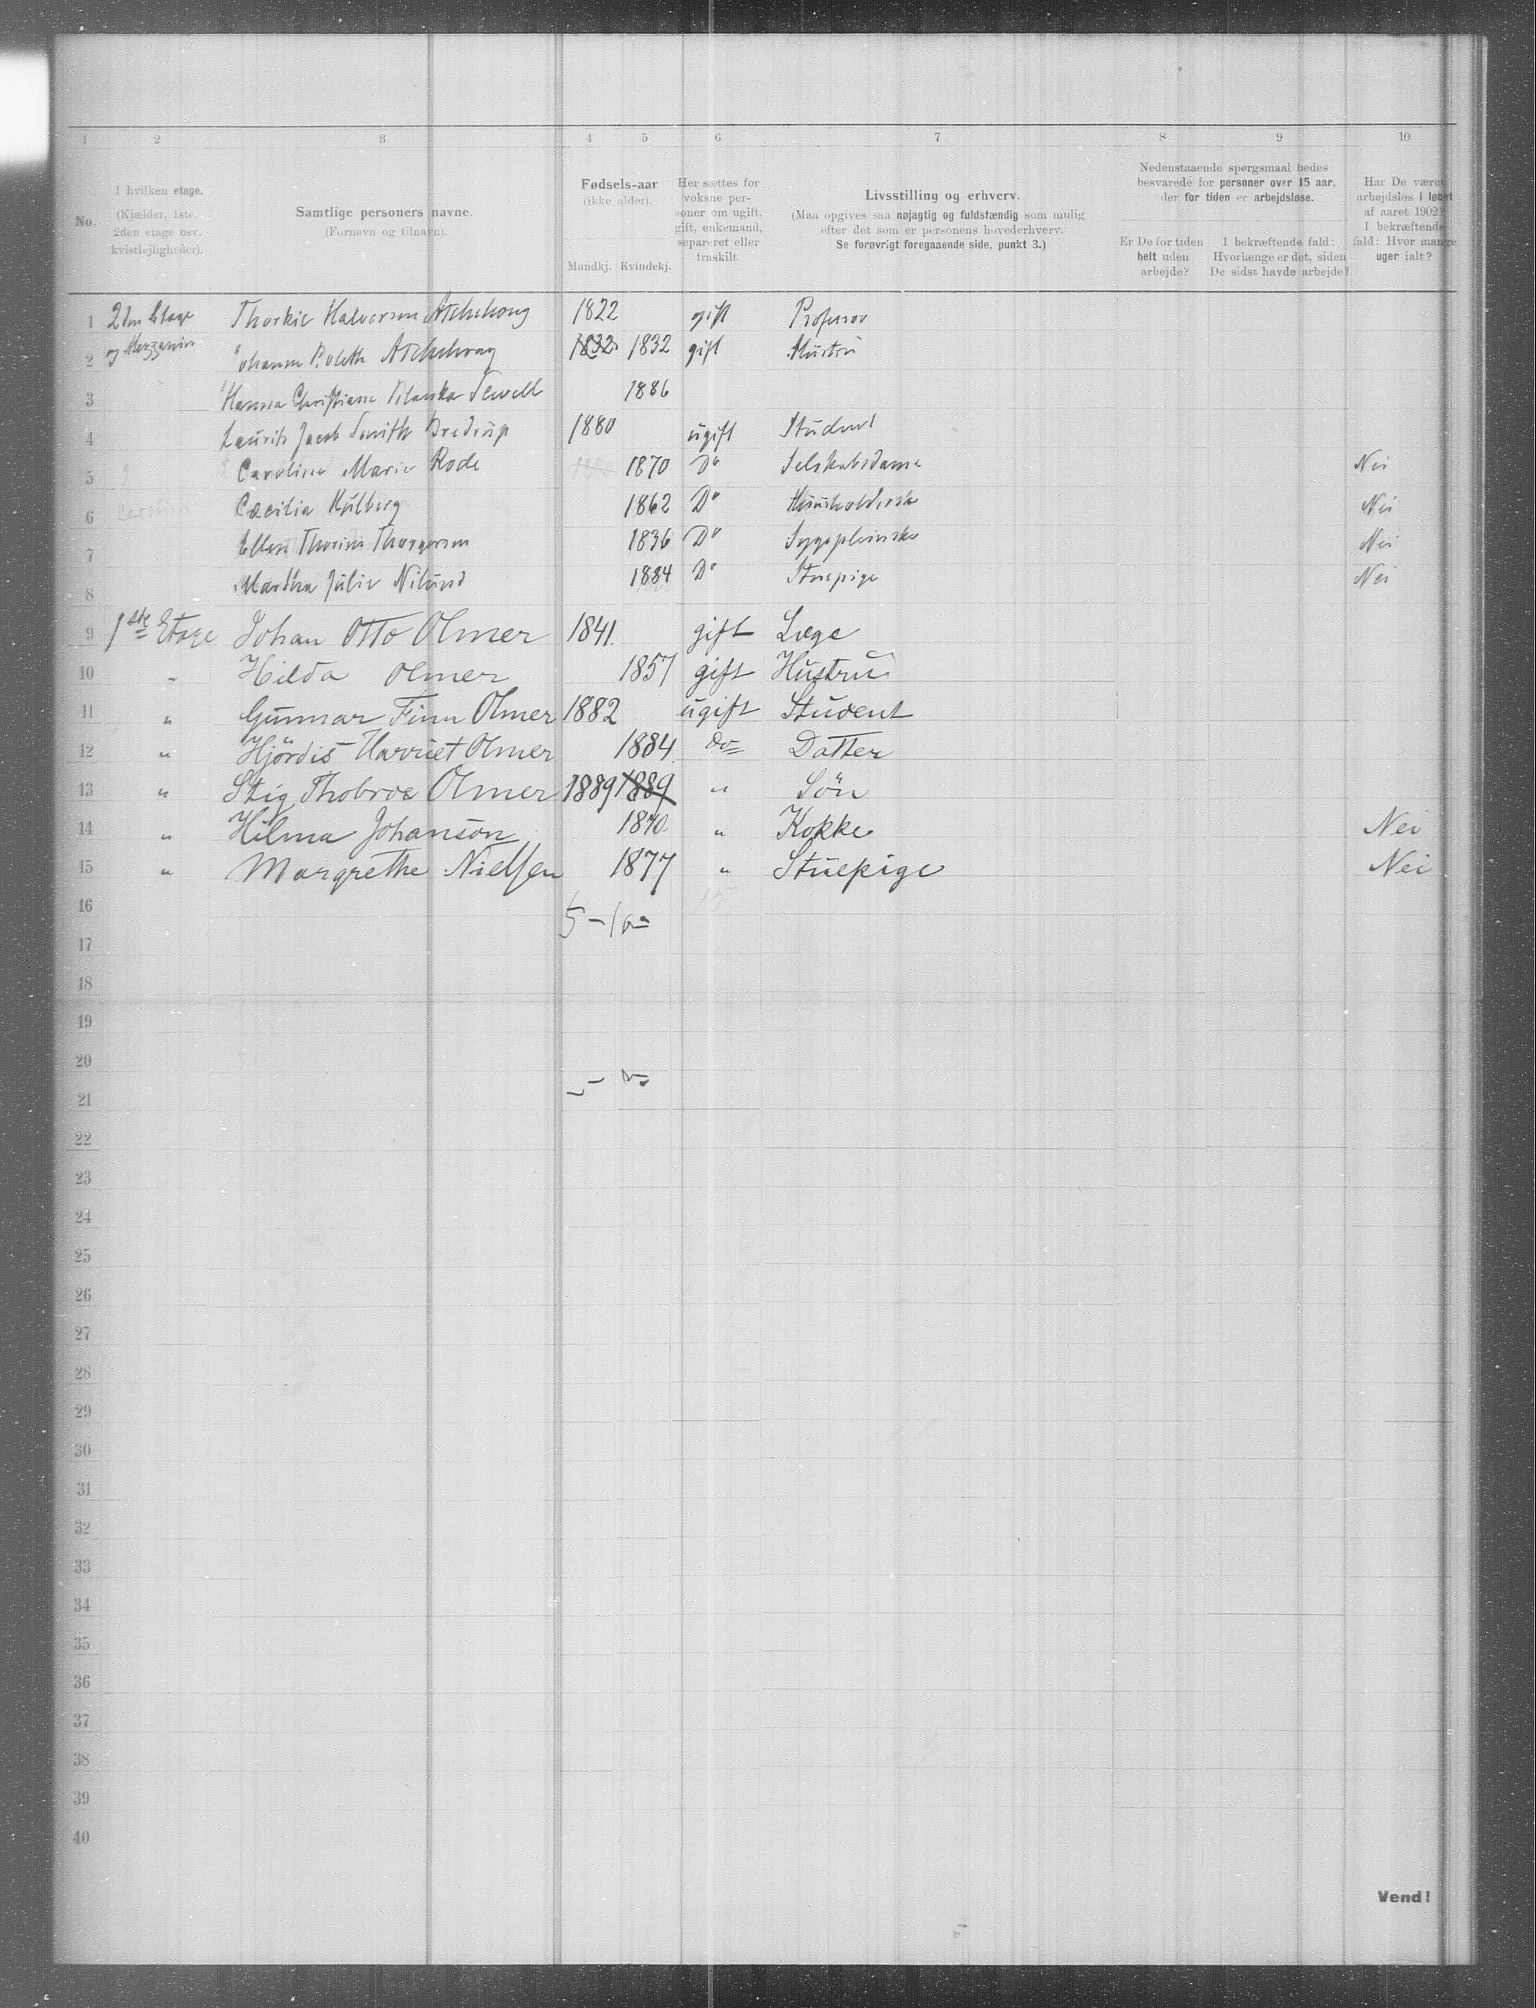 1 2 3 4 5 6 7 8 9 10
No. I hvilken etage. (Kjælder, 1ste, 2den etage osv. kvistlejligheder). Samtlige personers navne. (Fornavn og tilnavn). Fødsels-aar (ikke alder). Mandkj. Kvindekj. Her sættes for voksne personer om ugift, gift, enkemand, separeret eller fraskilt. Livsstilling og erhverv. (Maa opgives saa nøjagtig og fuldstændig som mulig efter det som er personens hovederhverv. Se forøvrigt foregaaende side, punkt 3.) Nedenstaaende spørgsmaal bedes besvarede for personer over 15 aar, der for tiden er arbejdsløse. Er De for tiden helt uden arbejde? I bekræftende fald: Hvorlænge er det, siden De sidst havde arbejde? Har De været arbejdsløs i løbet af aaret 1902? I bekræftende fald: Hvor mange uger ialt?
1 2den Etage Halvorsen Aschehoug 1822 gift Professor
2 og Mezzanin Aschehoug 1832 1832 gift Hustru
3 Hanna Christiane Sewell 1886
4 Laurits Jacob Smith Bredrup 1880 ugift Student
5 Caroline Marie Rode 1870 Do Selskabsdame Nei
6 Cæcilia Hulberg 1862 Do Husholderske Nei
7 Ellen Thorine Thorgersen 1836 Do Sygepleierske Nei
8 Martha Julie Nilund 1884 Do Stuepige Nei
9 1ste Etage Johan Otto Olmer 1841 gift Læge
10 " Hilda Olmer 1857 gift Hustru
11 " Gunnar Finn Olmer 1882 ugift Student
12 " Hjördis Harriet Olmer 1884 do Datter
13 " Stig Thobroe Olmer 1889 1889 " Sön
14 " Hilma Johanson 1870 " Kokke Nei
15 " Margrethe Nielsen 1877 " Stuepige Nei
16
5 - 10
17
18
19
20
21
22
23
24
25
26
27
28
29
30
31
32
33
34
35
36
37
38
39
40
Vend!